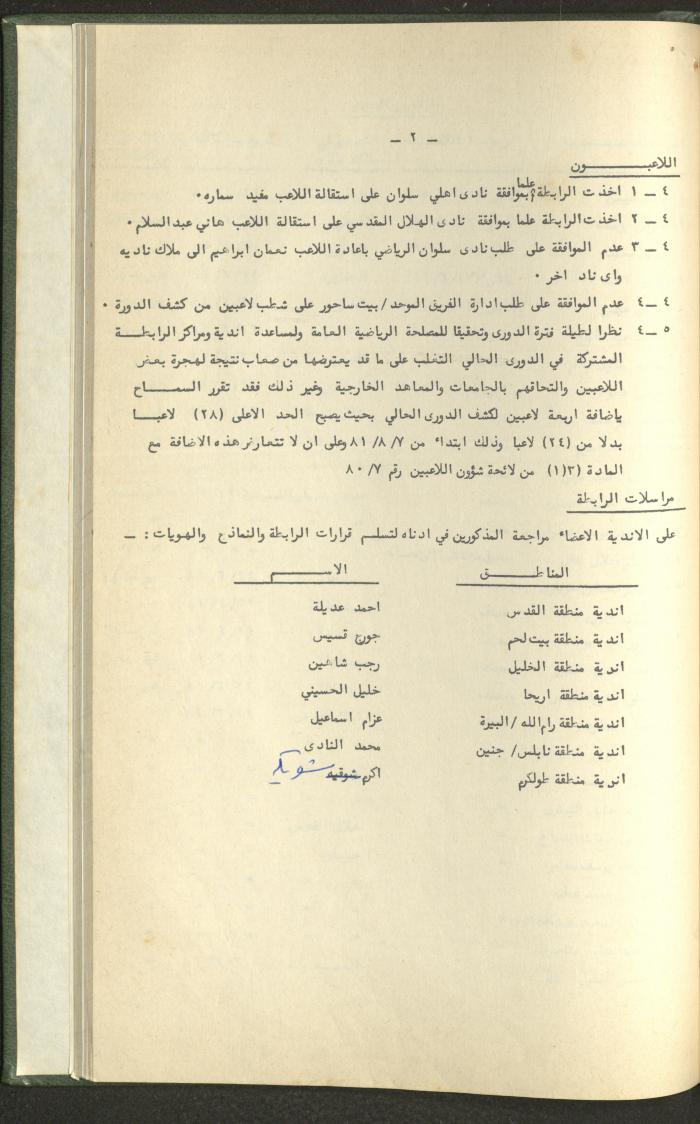 ـ ٢ ـ
اللاعبـــــــون
٤ ـ ١ اخذت الرابطة علما بموافقة نادى اهلي سلوان على استقالة اللاعب مفيد سماره ٠
٤ ـ ٢ اخذت الرابطة علما بموافقة نادى الهلال المقدسي على استقالة اللاعب هاني عبد السلام ٠
٤ ـ ٣ عدم الموافقة على طلب نادى سلوان الرياضي باعادة اللاعب نعمان ابراهيم الى ملاك ناديه
واى ناد اخر ٠
٤ ـ ٤ عدم الموافقة على طلب ادارة الفريق الموحد / بيت ساحور على شطب لاعبين من كشف الدورة ٠
٤ ـ ٥ نظرا لطيلة فترة الدورى وتحقيقا للمصلحة الرياضية العامة ولمساعدة اندية ومراكز الرابطـــة
المشتركة في الدورى الحالي التغلب على ما قد يعترضها من صعاب نتيجة لهجرة بعض
اللاعبين والتحاقهم بالجامعات والمعاهد الخارجية وغير ذلك فقد تقرر السمـــاح
بإضافة اربعة لاعبين لكشف الدورى الحالي بحيث يصبح الحد الاعلى (٢٨) لاعبـــا
بدلا من (٢٤) لاعبا وذلك ابتداء من ٨١/٨/٧ وعلى ان لا تتعارض هذه الاضافة مع
المادة (٣(١) من لائحة شؤون اللاعبين رقم ٨٠/٧
مراسلات الرابطة
على الاندية الاعضاء مراجعة المذكورين في ادناه لتسلم قرارات الرابطة والنماذج والهويات : ـ
المناطــــق الاســـــم
اندية منطقة القدس احمد عديلة
اندية منطقة بيت لحم جورج قسيس
اندية منطقة الخليل رجب شاهين
اندية منطقة اريحا خليل الحسيني
اندية منطقة رام الله / البيرة عزام اسماعيل
اندية منطقة نابلس / جنين محمد النادى
اندية منطقة طولكرم اكرم شوقيه